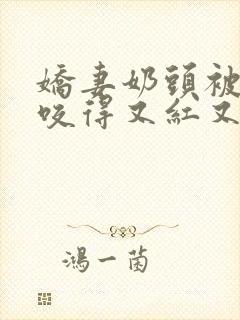 嬌妻奶頭被
咬得又紅又
鴻一菌